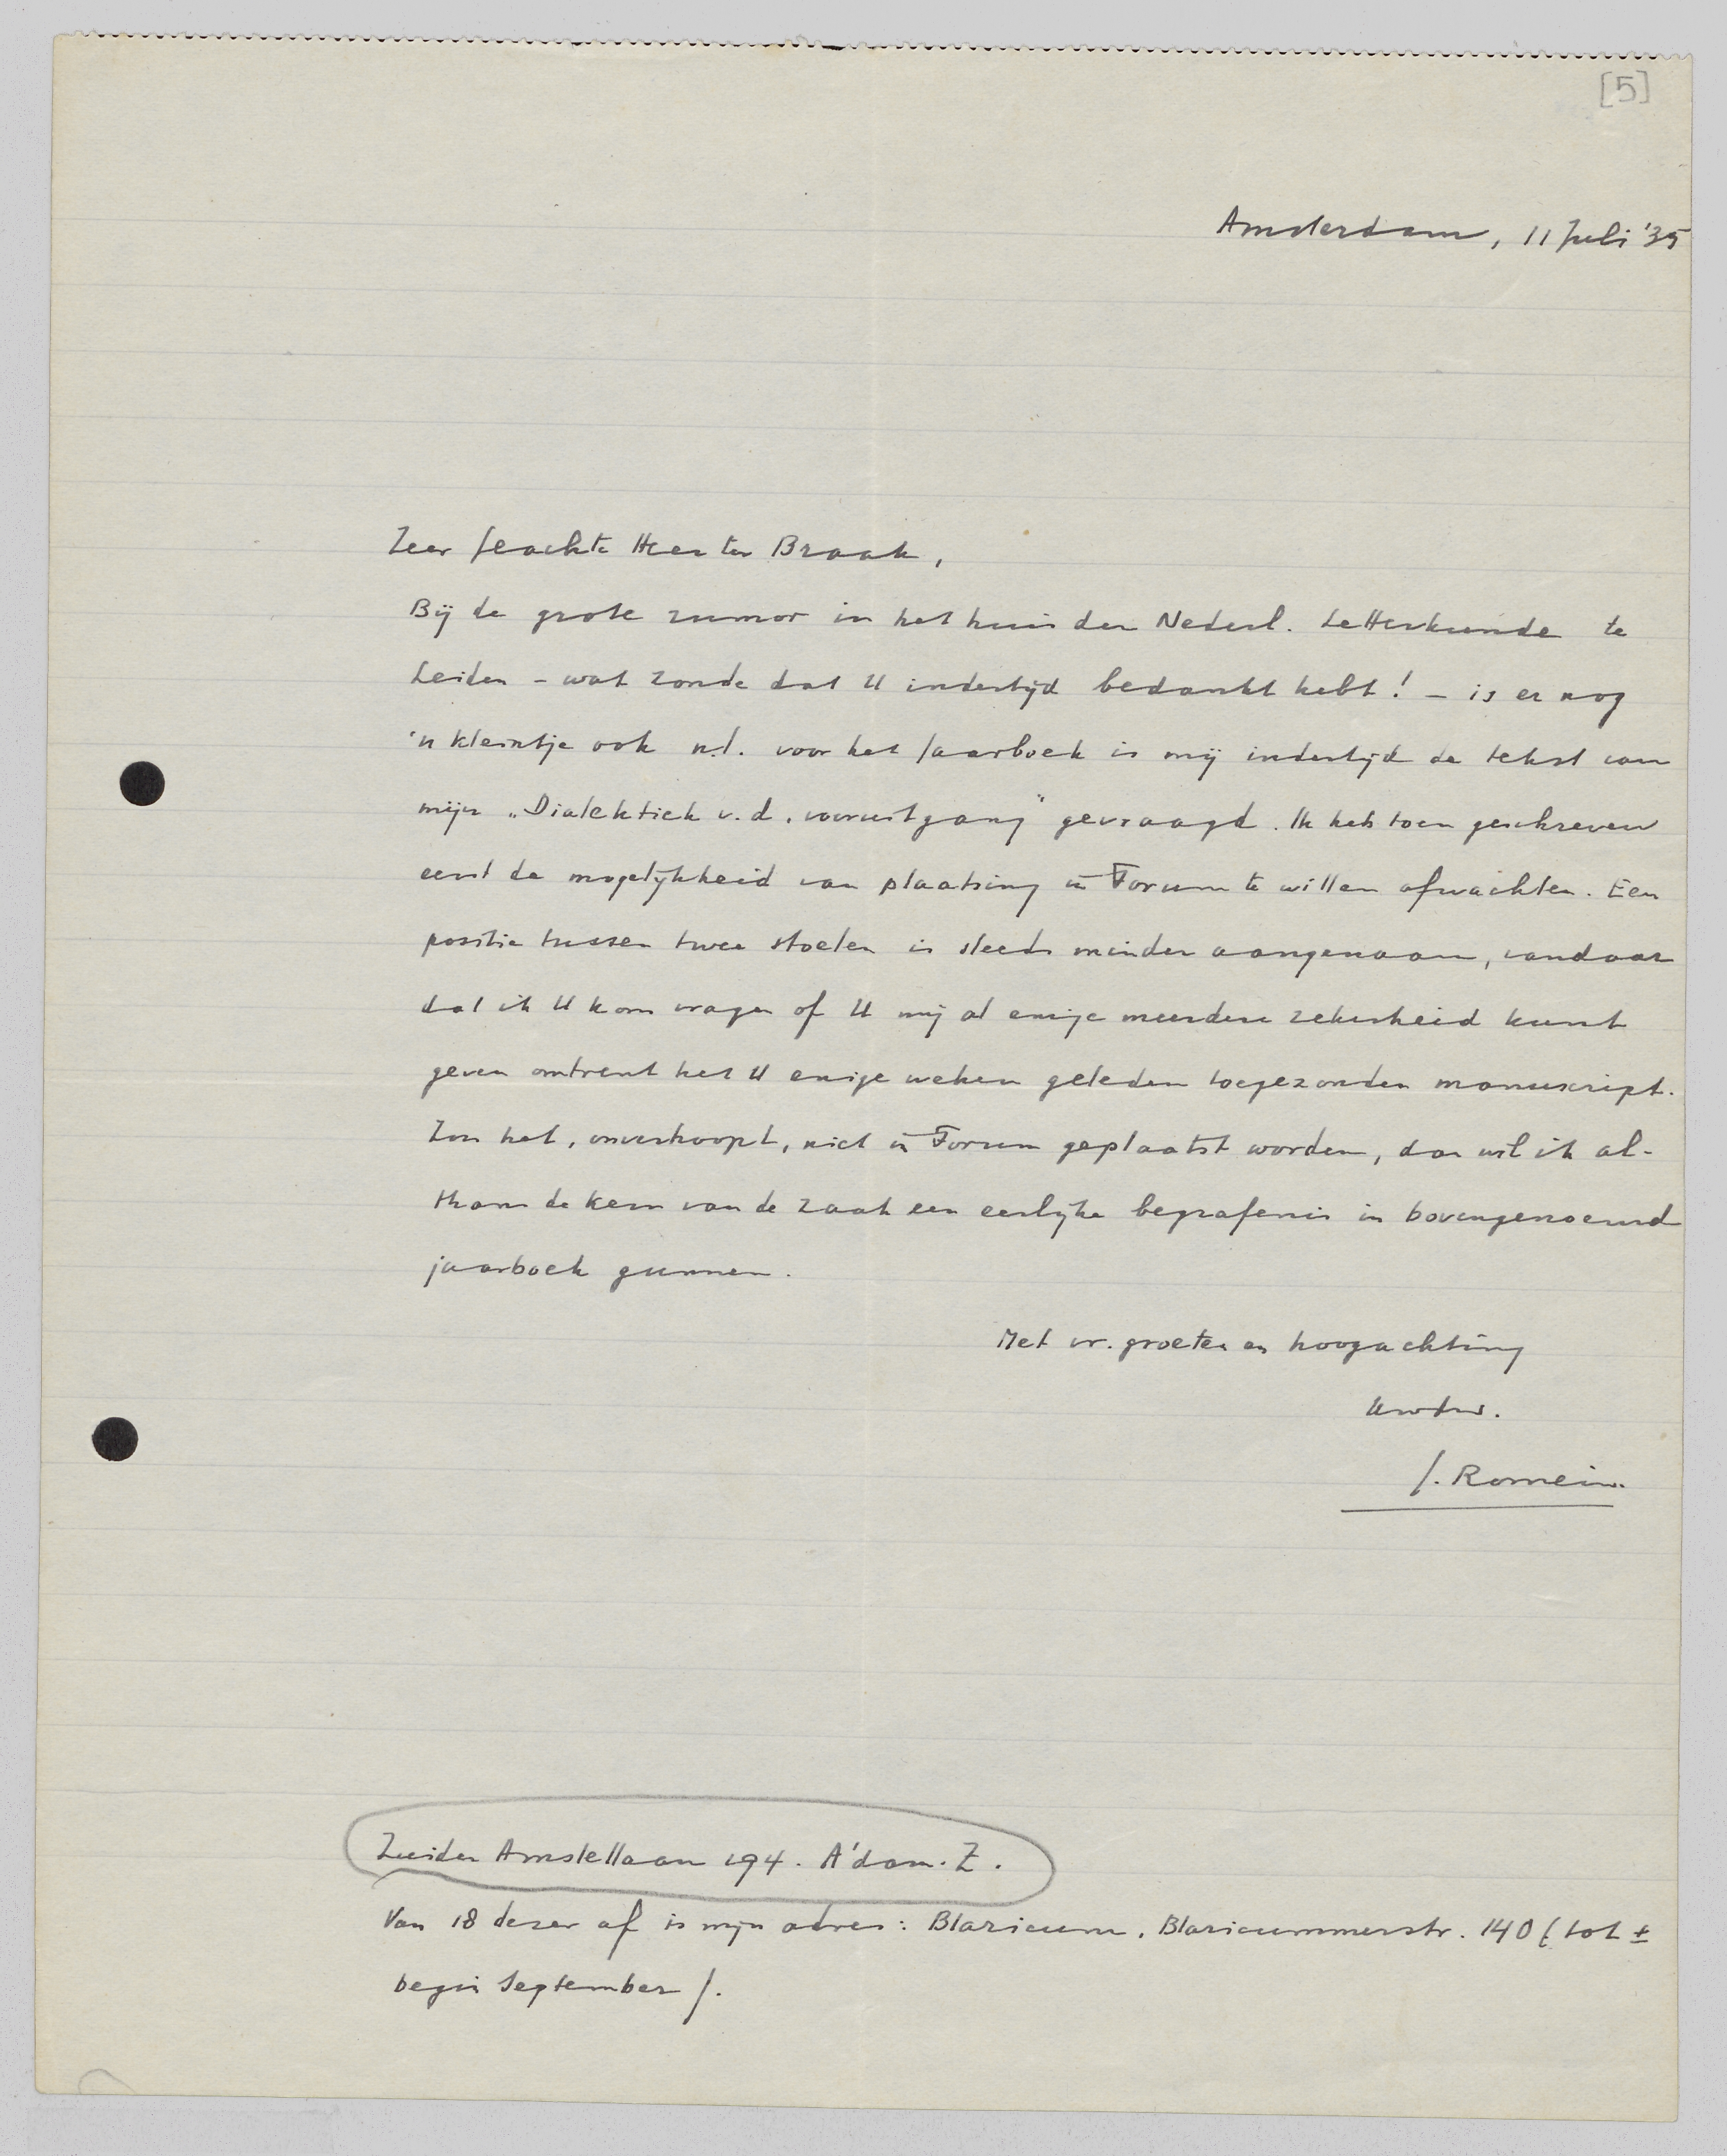 [5]
Amsterdam, 11 Juli '35
Zeer Geachte Heer ter Braak,
Bij de grote rumor in het huis der Nederl. Letterkunde te
Leiden – wat zonde dat U indertijd bedankt hebt! – is er nog
'n kleintje ook n.l. voor het Jaarboek is mij indertijd de tekst van
mijn „Dialektiek v.d. vooruitgang” gevraagd. Ik heb toen geschreven
eerst de mogelijkheid van plaatsing in Forum te willen afwachten. Een
positie tussen twee stoelen is steeds minder aangenaam, vandaar
dat ik U kom vragen of U mij al enige meerdere zekerheid kunt
geven omtrent het U enige weken geleden toegezonden manuskript.
Zou het, onverhoopt, niet in Forum geplaatst worden, dan wil ik al-
thans de kern van de zaak een eerlijke begrafenis in bovengenoemd
jaarboek gunnen.
Met vr. groeten en hoogachting
Uwdw.
J. Romein.
Zuider Amstellaan 194. A'dam. Z.
Van 18 dezer af is mijn adres: Blaricum. Blaricummerstr. 140 (tot ±
begin September).